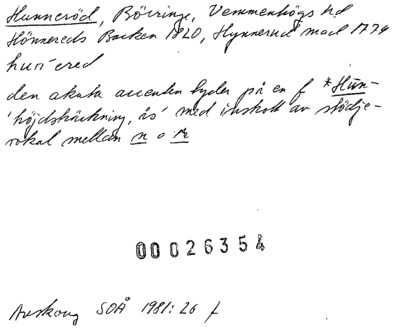 Hunneröd, Börringe, Vemmenhögs hd
Hönnereds Backen 1720, Hynnerud mad 1774
hun ̄ered
den akuta accenten tyder på en f *Hūn-
'höjdsträckning, ås' med inskott av stödje-
vokal mellan n o r
00026354
Avskong SOÅ 1981:26 f